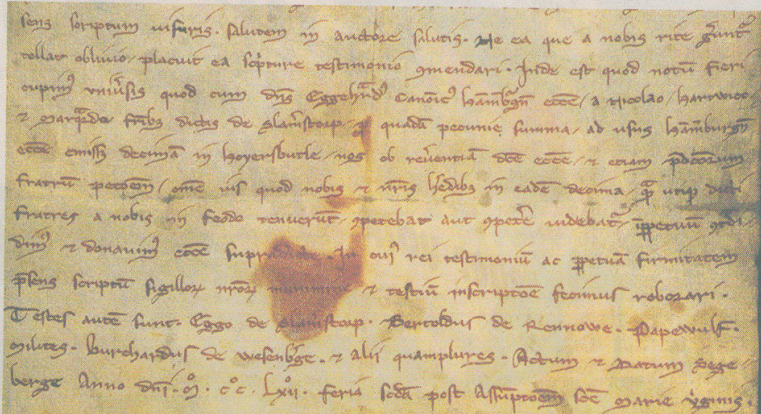 sens scriptum visuris. salutem in auctore salutis. Ne ea que a nobis rite gerunt᷑
tollat oblivio, placuit ea sc'pture testimonio ꝯmendari. Inde est quod notū fieri
cupimꝰ univ'sis quod cum dn̄s Eggehardꝰ Canonicꝰ hāmburgn̄ eccē, a Nicolao, hartwico
⁊ Marquardo frībus dictis de slamerstorp, ꝓ quadā pecunie summa, ad usus hāmburgn̄
eccē emiss; decimā in hoyersbutle, nos ob rev'entiā dc̄e eccē, ⁊ etiam pdcōrum
fratrū peticōem, om̄e ius quod nobis ⁊ nr̄is h'edibꝫ in eadē decima, quā dicti
fratres a nobis in feodo tenuerūt, ꝯpetebat aut ꝯpet'e videbat᷑, ꝑpetuū
dimꝰ ⁊ donavimꝰ eccē supradicte. In cuiꝰ rei testimoniū ac ꝑpetuā firmitatem
p̄sens scriptū sigilloꝝ nr̄oꝝ munimine ⁊ testiū inscriptōe fecimus roborari.
Testes autē sunt. Eggo de slamerstorp. Bertoldus de Rennowe. Papewulf.
milites. burchardus de Wesenb'ge. ⁊ alii quamplures. Actum ⁊ Datum Sege
berge Anno dn̄i. m̊. cc̊. lxii̊. feria scd̄a post Assūptōem sc̄e marie v'ginis.